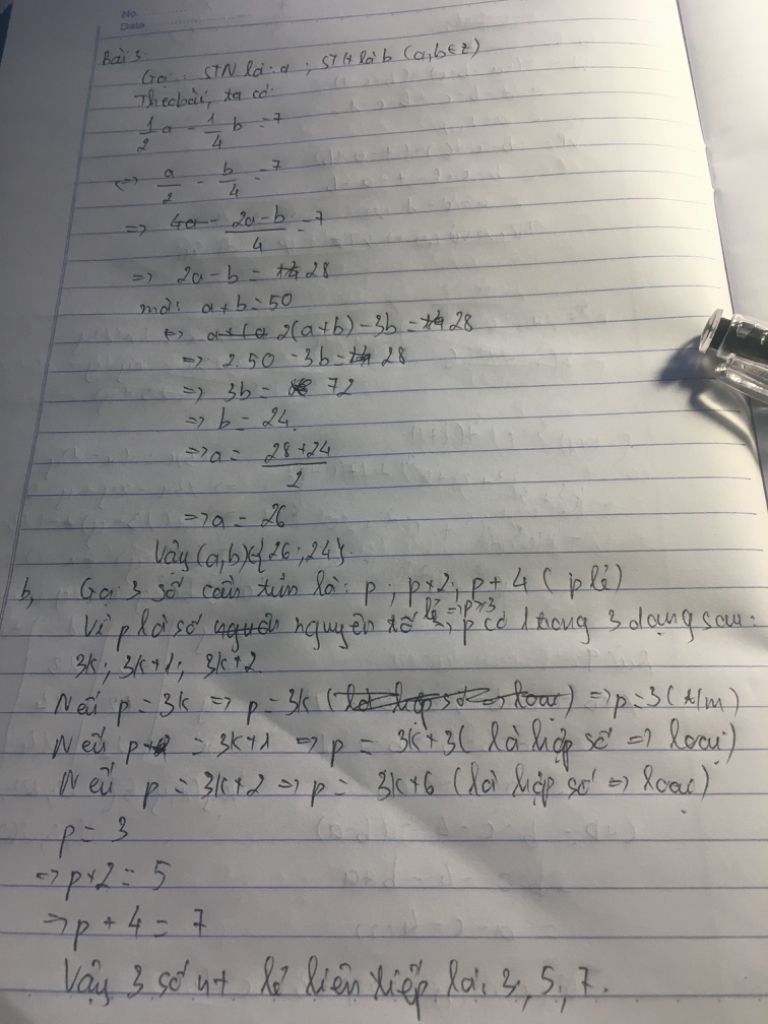 No.
Date
Bài 3.
Gọi STN là: a ; STH là b (a,b∈Z)
Theo bài, ta có:
1/2 a - 1/4 b = 7
<=> a/2 - b/4 = 7
=> (2a-b)/4 = 7
=> 2a - b = 28
mà: a + b = 50
<=> 2(a+b) - 3b = 28
=> 2.50 - 3b = 28
=> 3b = 72
=> b = 24.
=> a = (28+24)/2
=> a = 26
Vậy (a,b)∈{26;24}.
b, Gọi 3 số cần tìm là: p ; p+2; p+4 ( p lẻ)
Vì p là số nguyên tố lẻ => p≥3, p có 1 trong 3 dạng sau:
3k; 3k+1; 3k+2.
Nếu p = 3k => p = 3k (là hợp số => loại) => p=3 (t/m)
Nếu p = 3k+1 => p = 3k+3 ( là hợp số => loại)
Nếu p = 3k+2 => p = 3k+6 (là hợp số => loại)
p = 3
=> p+2 = 5
=> p + 4 = 7
Vậy 3 số nt lẻ liên tiếp là: 3, 5, 7.